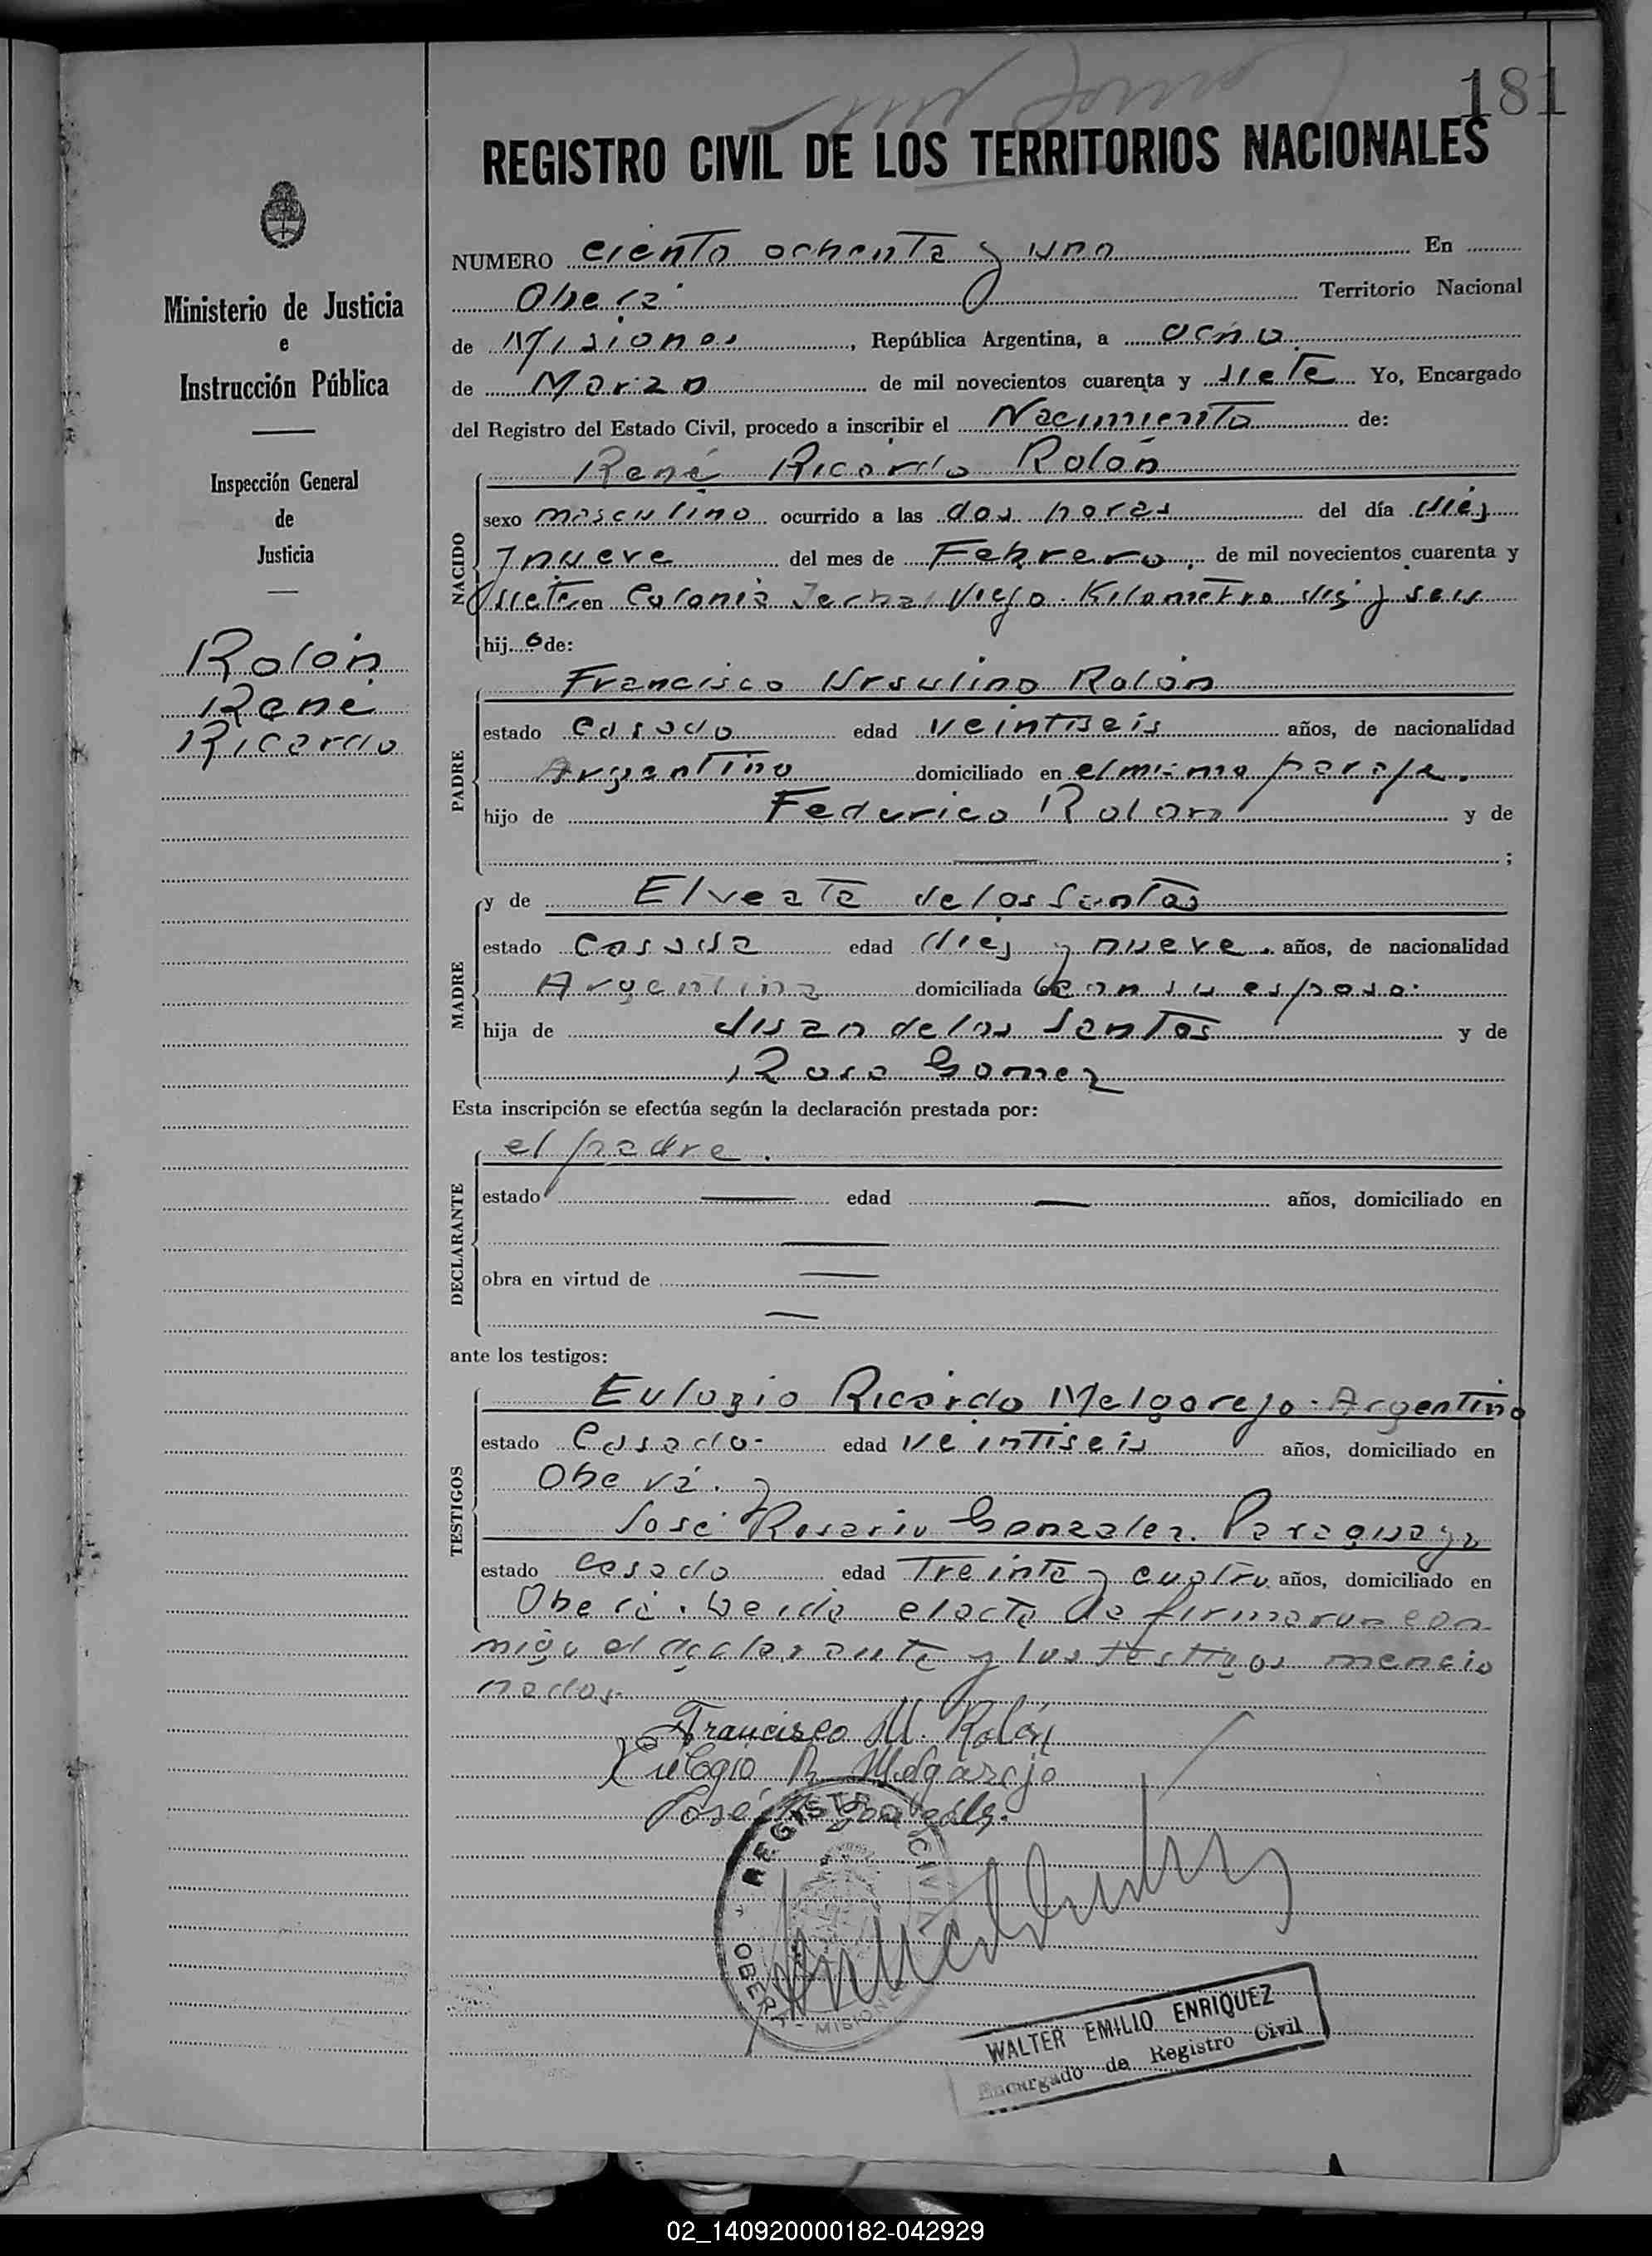 181
REGISTRO CIVIL DE LOS TERRITORIOS NACIONALES
Ministerio de Justicia
e
Instrucción Pública
Inspección General
de
Justicia
Rolón
René
Ricardo
NUMERO ciento ochenta y uno En
Oberá Territorio Nacional
de Misiones, República Argentina, a ocho
de Marzo de mil novecientos cuarenta y siete Yo, Encargado
del Registro del Estado Civil, procedo a inscribir el Nacimiento de:
NACIDO
René Ricardo Rolón
sexo masculino ocurrido a las dos horas del día diéj
y nueve del mes de Febrero de mil novecientos cuarenta y
siete en Colonia Yerbal Viejo Kilometro diej y seis
hij o de:
PADRE
Francisco Ursulino Rolón
estado casado edad veintiseis años, de nacionalidad
Argentino domiciliado en el mismo paraje.
hijo de Federico Rolon y de
;
MADRE
y de Elveata de los Santos
estado Casada edad diej y nueve. años, de nacionalidad
Argentina domiciliada con su esposo.
hija de Juan de los Santos y de
Rosa Gomez
Esta inscripción se efectúa según la declaración prestada por:
DECLARANTE
el padre.
estado edad años, domiciliado en
obra en virtud de
ante los testigos:
TESTIGOS
Eulogio Ricardo Melgarejo. Argentino
estado Casado- edad veintiseis años, domiciliado en
Oberá. y
José Rosario Gonzalez. Paraguayo
estado casado edad treinta y cuatro años, domiciliado en
Oberá. Leida el acta la firmaron con
migo el declarante y los testigos mencio
nados.
Francisco U. Rolón
Eulogio R. Melgarejo
José R. Gonzalez.
REGISTRO CIVIL
OBERÁ - MISIONES
WALTER EMILIO ENRIQUEZ
Encargado de Registro Civil
02_140920000182-042929